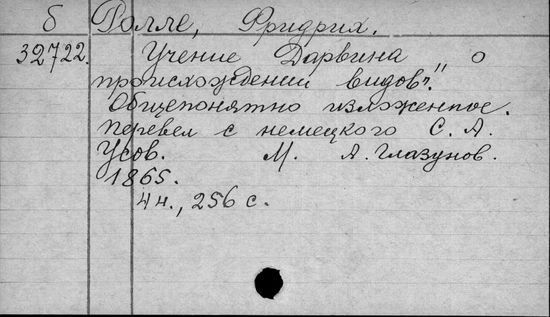 б Ролле, Фридрих.
32722. Учение Дарвина о
происхождении видовъ."
Общепонятно изложенное.
Перевел с немецкого С. А.
Усов. М. А. Глазунов.
1865.
4н., 256 с.